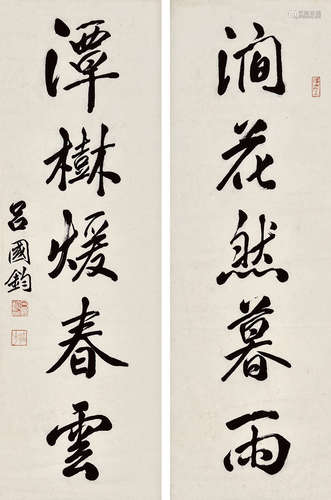 澗花然暮雨
潭樹煖春雲
呂國鈞